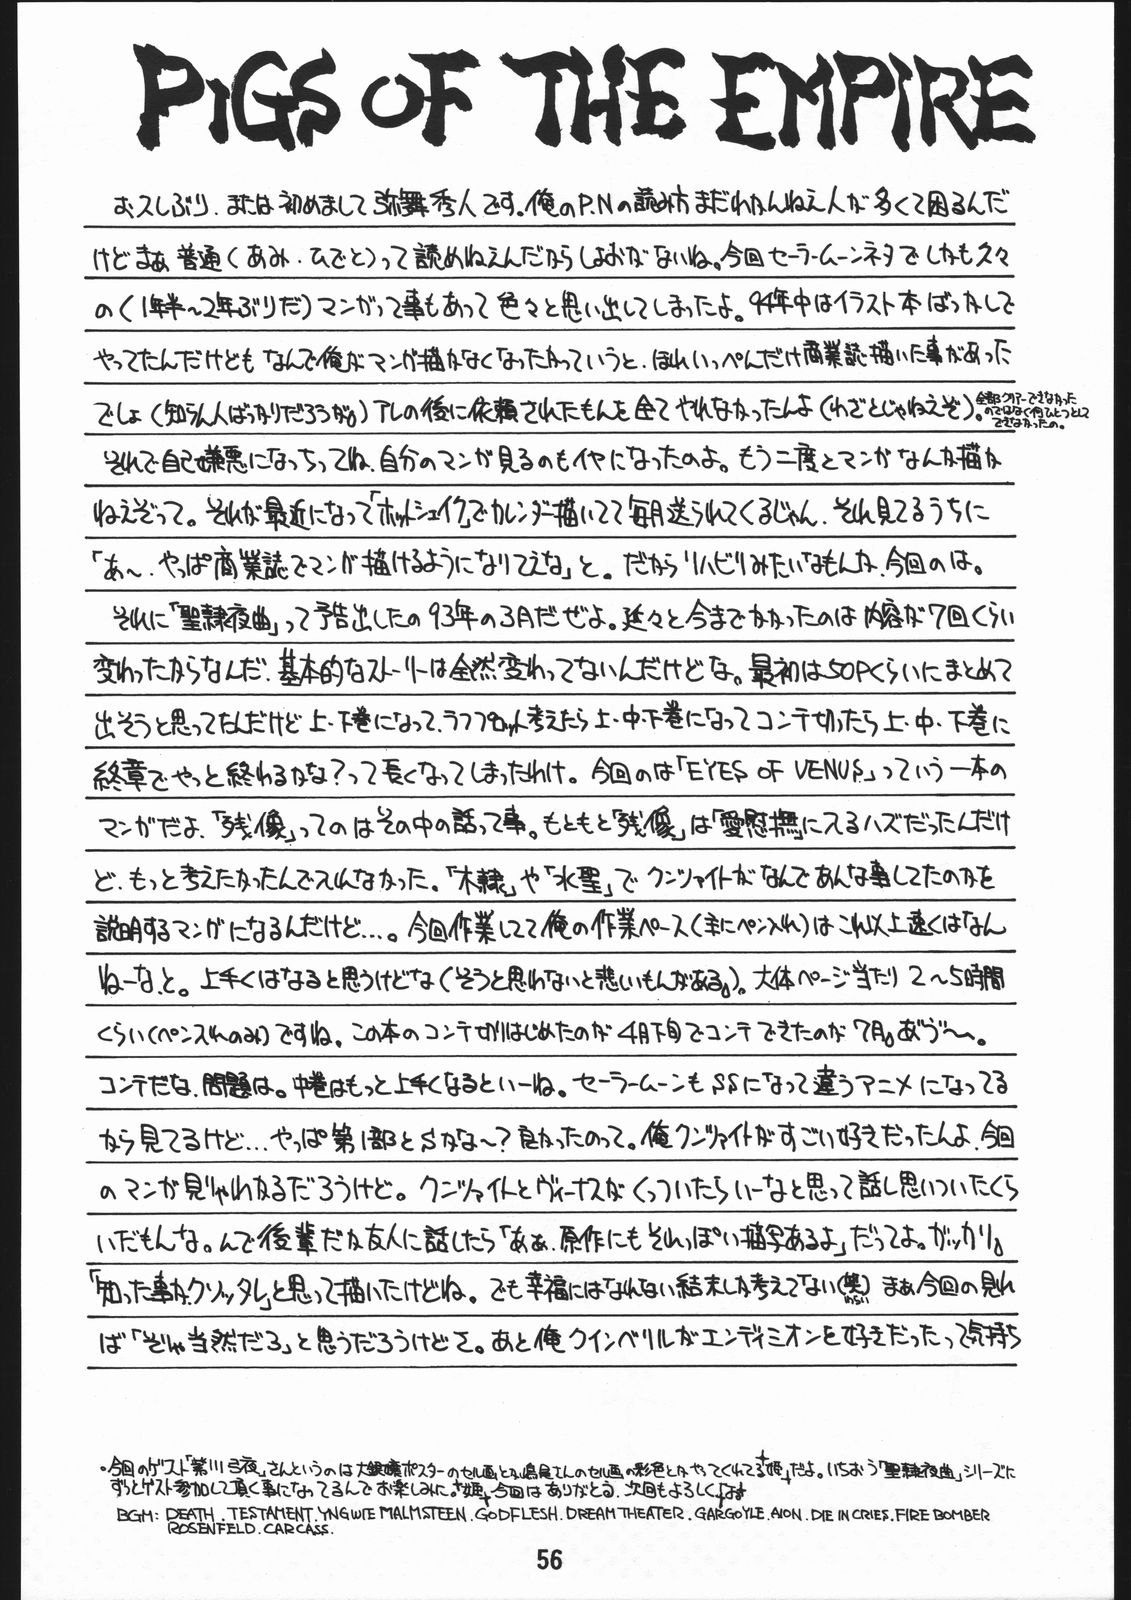 PIGS OF THE EMPIRE
お久しぶり、または初めまして弥舞秀人です。俺のP.Nの読み方まだわかんねえ人が多くて困るんだ
けどまぁ普通(あみ・ひでと)って読めねえんだからしょおがないね。今回セーラームーンネタでしかも久々
の(1年半〜2年ぶりだ)マンガって事もあって色々と思い出してしまったよ。94年中はイラスト本ばっかしで
やってたんだけどもなんで俺がマンガ描かなくなったかっていうと、ほれいっぺんだけ商業誌描いた事があった
でしょ(知らん人ばっかりだろうがな)アレの後に依頼されたもんを全てやれなかったんよ(わざとじゃねえぞ)。
全部クリアーできなかった
のではなく何ひとつとして
できなかったの。
それで自己嫌悪になっちってね、自分のマンガ見るのもイヤになったのよ。もう二度とマンガなんか描か
ねえぞって。それが最近になって「ホットシェイク」でカレンダー描いてて毎月送られてくるじゃん、それ見てるうちに
「あ〜、やっぱ商業誌でマンガ描けるようになりてえな」と。だからリハビリみたいなもんか、今回のは。
それに「聖隷夜曲」って予告出したの93年の3月だぜよ。延々と今までかかったのは内容が7回くらい
変わったからなんだ、基本的なストーリーは全然変わってないんだけどな。最初は50Pくらいにまとめて
出そうと思ってたんだけど上・下巻になって、ラフプロット考えたら上・中・下巻になってコンテ切ったら上・中・下巻に
終章でやっと終わるかな?って長くなってしまったわけ。今回のは「EYES OF VENUS」っていう一本の
マンガだよ、「残像」ってのはその中の話って事。もともと「残像」は「愛慰撫」に入るハズだったんだけ
ど、もっと考えたかったんで入れなかった。「木隷」や「水聖」でクンツァイトがなんであんな事してたのかを
説明するマンガになるんだけど…。今回作業してて俺の作業ペース(主にペン入れ)はこれ以上速くはなん
ねーな、と。上手くはなると思うけどな(そうと思わないと悲しいもんがある)。大体ページ当たり2〜5時間
くらい(ペン入れのみ)ですね。この本のコンテ切りはじめたのが4月下旬でコンテできたのが7月。あ゛う゛〜。
コンテだな、問題は。中巻はもっと上手くなるといーね。セーラームーンもSSになって違うアニメになってる
から見てるけど…やっぱ第1部とSかな〜?良かったのって。俺クンツァイトがすごい好きだったんよ、今回
のマンガ見りゃわかるだろうけど。クンツァイトとヴィーナスがくっついたらいーなと思って話し思いついたくら
いだもんな。んで後輩だか友人に話したら「あぁ、原作にもそれっぽい描写あるよ」だってよ。ガッカリ。
「知った事か、クソッタレ」と思って描いたけどね。でも幸福にはなれない結末しか考えてない(笑)まぁ今回の見れ
ば「そりゃ当然だろ」と思うだろうけどさ。あと俺クインベリルがエンディミオンを好きだったって気持ち
・今回のゲスト「紫川弓夜」さんというのは大銀嬢ポスターのセル画とか島尾さんのセル画の彩色とかやってくれてる“姫”だよ。いちおう「聖隷夜曲」シリーズに
ずっとゲスト参加して頂く事になってるんでお楽しみに。“姫”今回はありがとう、次回もよろしく
BGM: DEATH. TESTAMENT. YNGWIE MALMSTEEN. GODFLESH. DREAM THEATER. GARGOYLE. AION. DIE IN CRIES. FIRE BOMBER
ROSENFELD. CARCASS.
56